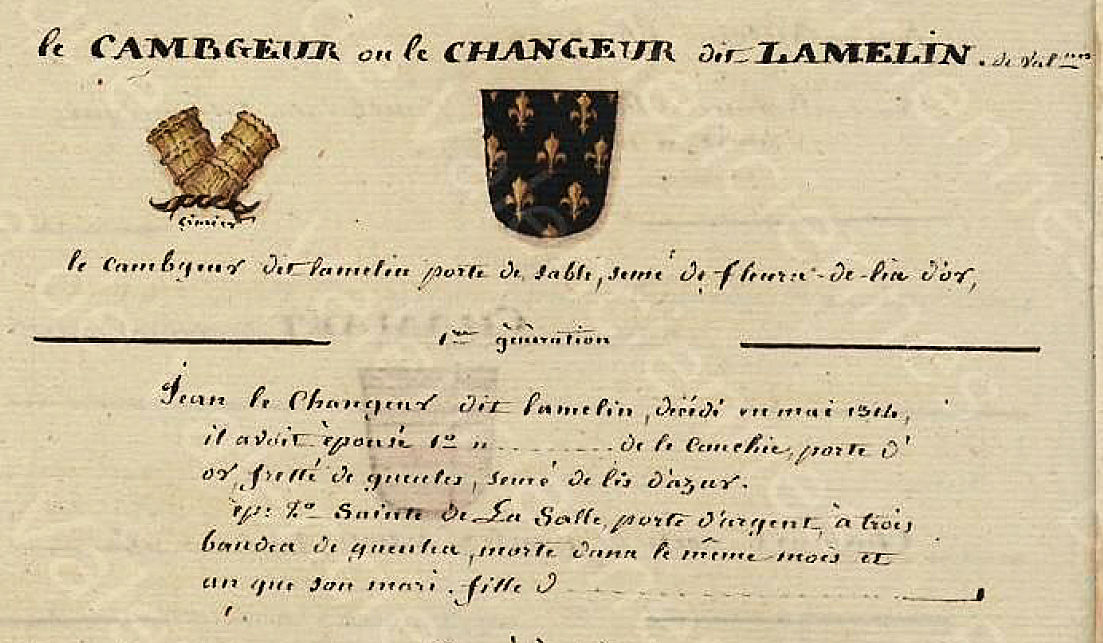 le CAMBGEUR ou le CHANGEUR dit LAMELIN. de Val.nes
Cimier
le cambgeur dit lamelin porte de sable, semé de fleurs-de-lis d'or,
1re génération
Jean le Changeur dit lamelin, décédé en mai
il avoit épousé 1o n.......... de le Cauchie, porte d'
or, fretté de gueules, semé de lis d'azur.
ep: 2o Sainte de La Salle, porte d'argent, à trois
bandes de gueules, morte dans le même mois et
an que son mari. fille d